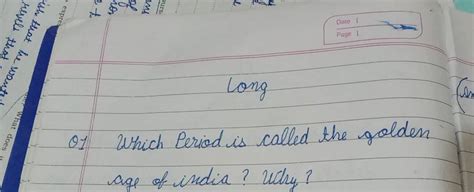 Date
Page
Long
Q1 Which Period is called the golden
age of india ? Why ?